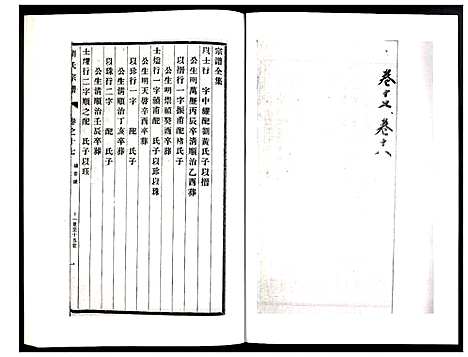 卷十七、卷十八
宗譜全集
以士行 字中耀配劉黃氏子以搢
公生明萬曆丙辰卒清順治乙酉葬
以搢行一字振甫配 楮氏子
公生明崇禎癸酉卒葬
士燈行一字頌甫配 氏子以珍以珠
公生明天啟辛酉卒葬
以珍行一字 配 氏子
公生清順治丁亥卒葬
以珠行二字 配 氏子
公生清順治壬辰卒葬
士燿行二字順之配 氏子以珱
氏宗譜
卷之十七